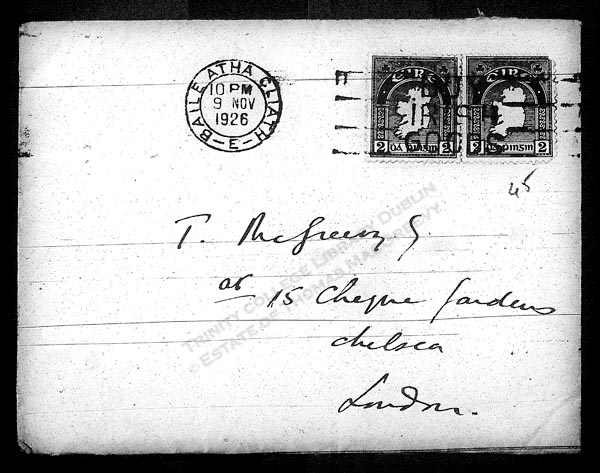 BAILE ATHA CLIATH
10 PM
9 NOV
1926
-E-
EIRE EIRE
2 DÁ PINGIN 2 2 DÁ PINGIN 2
45
T. McGreevy
at 15 Cheyne Gardens
Chelsea
London.
TRINITY COLLEGE LIBRARY DUBLIN
© ESTATE OF THOMAS MACGREEVY